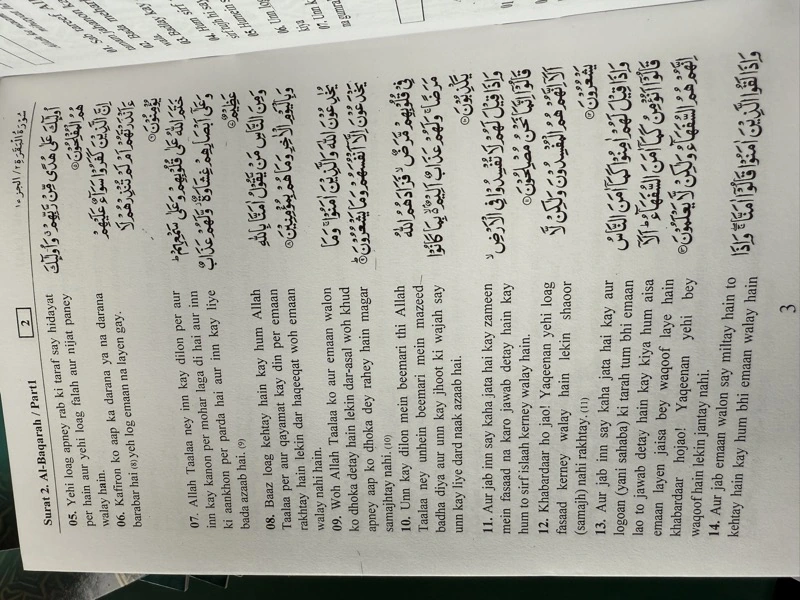 01. Sab tareef
Surat 2. Al-Baqarah / Part1
2
سُوْرَةُ الْبَقَرَة ٢ / الجزء ١
05. Yehi loag apney rab ki taraf say hidayat
per hain aur yehi loag falah aur nijat paney
walay hain.
06. Kafron ko aap ka darana ya na darana
barabar hai (8) yeh log emaan na layen gay.
07. Allah Taalaa ney inn kay dilon per aur
inn kay kanon per mohar laga di hai aur inn
ki aankhon per parda hai aur inn kay liye
bada azaab hai. (9)
08. Baaz loag kehtay hain kay hum Allah
Taalaa per aur qayamat kay din per emaan
rakhtay hain lekin dar haqeeqat woh emaan
walay nahi hain.
09. Woh Allah Taalaa ko aur emaan walon
ko dhoka detay hain lekin dar-asal woh khud
apney aap ko dhoka dey rahey hain magar
samajhtay nahi. (10)
10. Unn kay dilon mein beemari thi Allah
Taalaa ney unhein beemari mein mazeed
badha diya aur unn kay jhoot ki wajah say
unn kay liye dard naak azaab hai.
11. Aur jab inn say kaha jata hai kay zameen
mein fasaad na karo jawab detay hain kay
hum to sirf islaah kerney walay hain.
12. Khabardaar ho jao! Yaqeenan yehi loag
fasaad kerney walay hain lekin shaoor
(samajh) nahi rakhtay. (11)
13. Aur jab inn say kaha jata hai kay aur
logoan (yani sahaba) ki tarah tum bhi emaan
lao to jawab detay hain kay kiya hum aisa
emaan layen jaisa bey waqoof laye hain
khabardaar hojao! Yaqeenan yehi bey
waqoof hain lekin jantay nahi.
14. Aur jab emaan walon say miltay hain to
kehtay hain kay hum bhi emaan walay hain
أُولَٰئِكَ عَلَىٰ هُدًى مِّن رَّبِّهِمْ وَأُولَٰئِكَ
هُمُ الْمُفْلِحُونَ ۝
إِنَّ الَّذِينَ كَفَرُوا سَوَاءٌ عَلَيْهِمْ
ءَأَنذَرْتَهُمْ أَمْ لَمْ تُنذِرْهُمْ لَا
يُؤْمِنُونَ ۝
خَتَمَ اللَّهُ عَلَىٰ قُلُوبِهِمْ وَعَلَىٰ سَمْعِهِمْ ۖ
وَعَلَىٰ أَبْصَارِهِمْ غِشَاوَةٌ ۖ وَلَهُمْ عَذَابٌ
عَظِيمٌ ۝
وَمِنَ النَّاسِ مَن يَقُولُ آمَنَّا بِاللَّهِ
وَبِالْيَوْمِ الْآخِرِ وَمَا هُم بِمُؤْمِنِينَ ۝
يُخَادِعُونَ اللَّهَ وَالَّذِينَ آمَنُوا ۚ وَمَا
يَخْدَعُونَ إِلَّا أَنفُسَهُمْ وَمَا يَشْعُرُونَ ۝
فِي قُلُوبِهِم مَّرَضٌ ۙ فَزَادَهُمُ اللَّهُ
مَرَضًا ۚ وَلَهُمْ عَذَابٌ أَلِيمٌ ۙ بِمَا كَانُوا
يَكْذِبُونَ ۝
وَإِذَا قِيلَ لَهُمْ لَا تُفْسِدُوا فِي الْأَرْضِ ۙ
قَالُوا إِنَّمَا نَحْنُ مُصْلِحُونَ ۝
أَلَا إِنَّهُمْ هُمُ الْمُفْسِدُونَ وَلَٰكِن لَّا
يَشْعُرُونَ ۝
وَإِذَا قِيلَ لَهُمْ آمِنُوا كَمَا آمَنَ النَّاسُ
قَالُوا أَنُؤْمِنُ كَمَا آمَنَ السُّفَهَاءُ ۗ أَلَا
إِنَّهُمْ هُمُ السُّفَهَاءُ وَلَٰكِن لَّا يَعْلَمُونَ ۝
وَإِذَا لَقُوا الَّذِينَ آمَنُوا قَالُوا آمَنَّا ۚ وَإِذَا
3